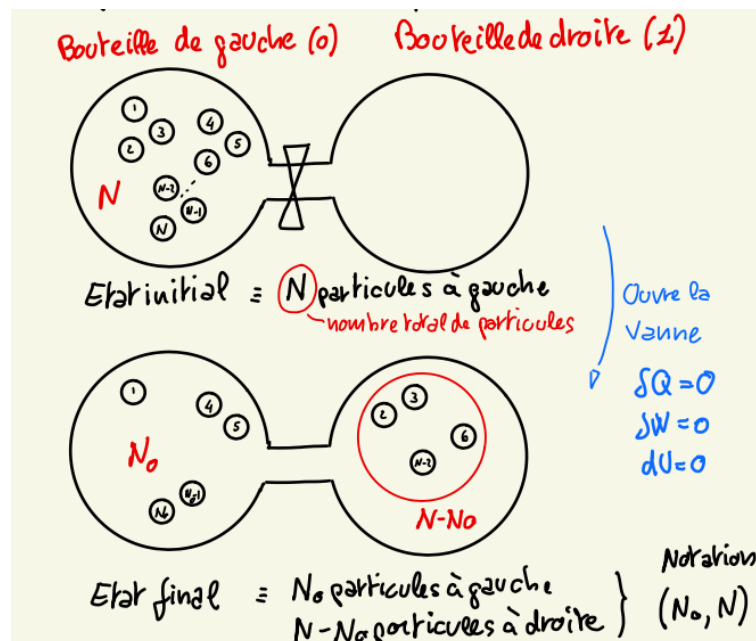 Bouteille de gauche (0) Bouteille de droite (1)
1
2
3
4
5
6
N-2
N-1
N
N
Etat initial ≡ N particules à gauche
nombre total de particules
Ouvre la
vanne
δQ=0
δW=0
dU=0
1
4
5
N₀
N₀-1
N₀
2
3
6
N-2
N-N₀
Etat final ≡ N₀ particules à gauche
N-N₀ particules à droite
Notation
(N₀, N)